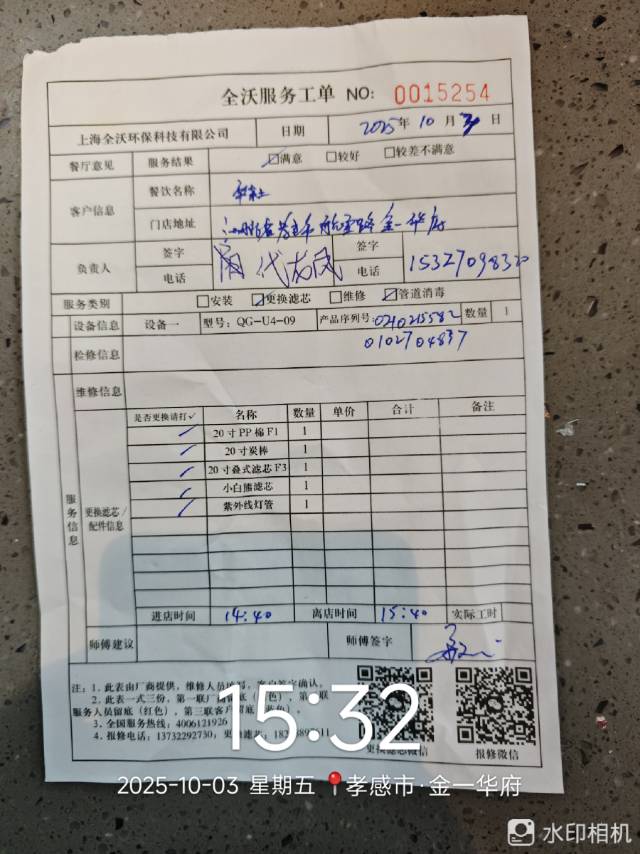 全沃服务工单 NO: 0015254
上海全沃环保科技有限公司 日期 2025年 10月 日
餐厅意见 服务结果 ☑满意 □较好 □较差不满意
客户信息 餐饮名称
门店地址 金一华府
负责人 签字 代 签字
电话 电话 15327098320
服务类别 □安装 ☑更换滤芯 □维修 ☑管道消毒
设备信息 设备一 型号: QG-U4-09 产品序列号: 0210215582 数量 1
0102704837
检修信息
维修信息
服务信息
更换滤芯/配件信息
是否更换请打✓ 名称 数量 单价 合计 备注
✓ 20寸PP棉F1 1
✓ 20寸炭棒 1
✓ 20寸叠式滤芯F3 1
✓ 小白熊滤芯 1
✓ 紫外线灯管 1
进店时间 14:40 离店时间 15:40 实际工时
师傅建议 师傅签字
注: 1. 此表由厂商提供, 维修人员填写, 客户签字确认。
2. 此表一式三份, 第一联厂商留底
服务人员留底(红色), 第三联客户留底
3. 全国服务热线: 4006121926
4. 报修电话: 13732292730, 更换滤芯:
更换滤芯微信 报修微信
15:32
2025-10-03 星期五 孝感市·金一华府
水印相机